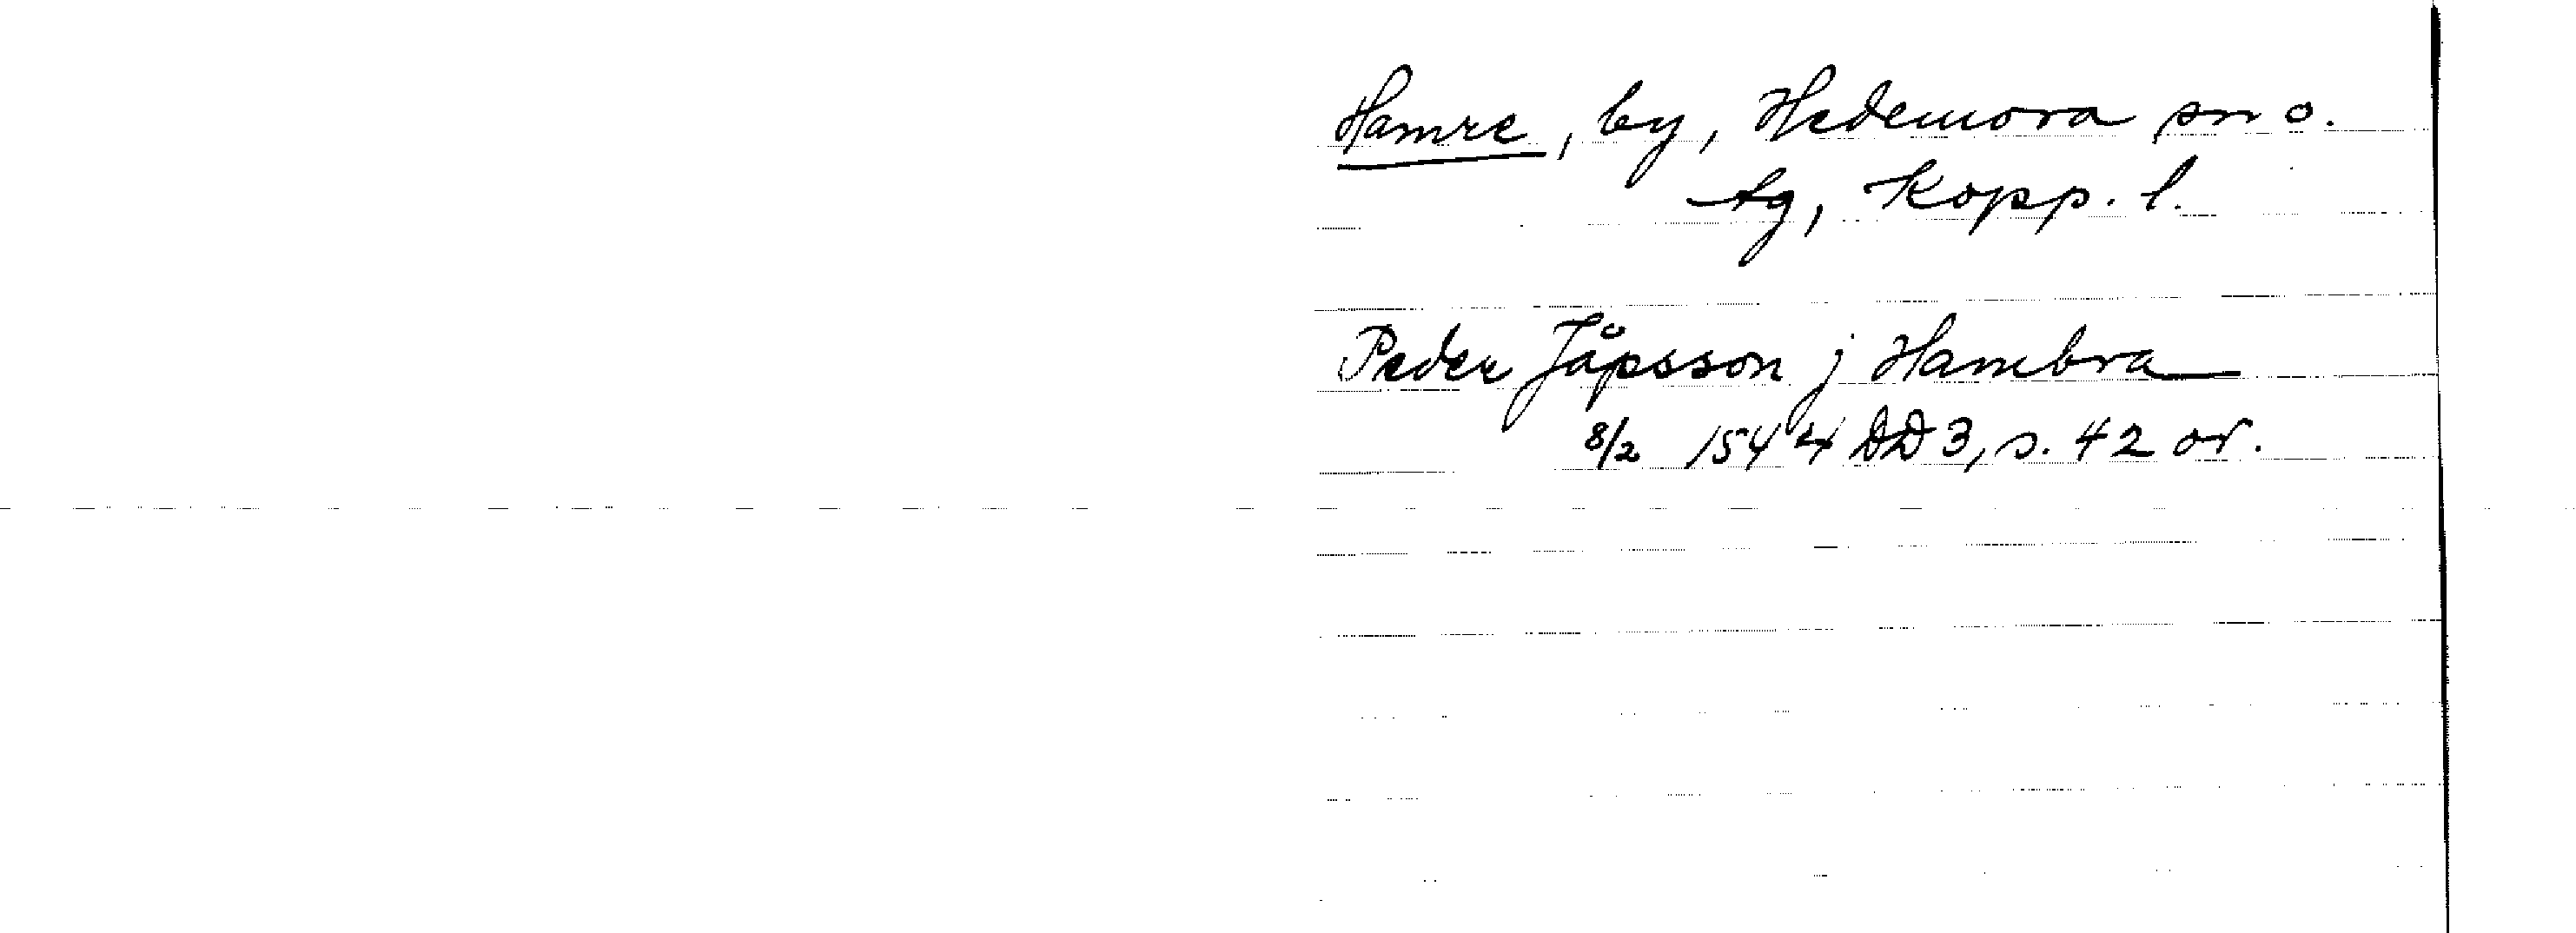 Hamre, by, Hedemora sn o.
tg, Kopp. l.
Peder Jåpsson j Hambra
8/2 1544 DD 3, s. 42 or.